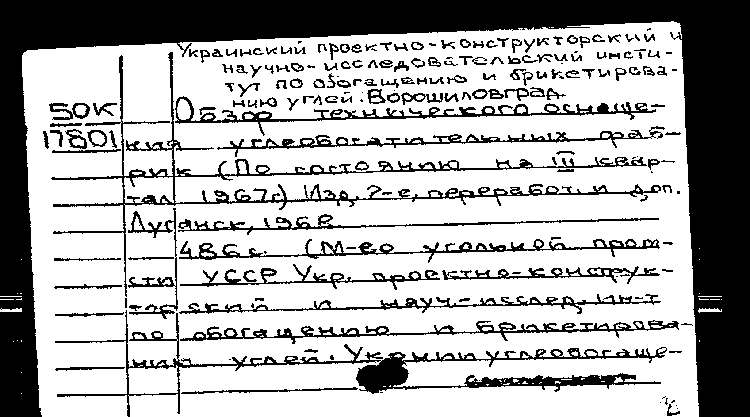 Украинский проектно-конструкторский и
научно-исследовательский инсти-
тут по обогащению и брикетирова-
нию углей. Ворошиловград.
50К Обзор технического оснаще-
17801 ния углеобогатительных фаб-
рик (По состоянию на III квар-
тал 1967г.) Изд. 2-е, переработ. и доп.
Луганск, 1968.
486с. (М-во угольной пром-
сти УССР Укр. проектно-конструк-
торский и науч.-исслед. ин-т
по обогащению и брикетирова-
нию углей. Укрнииуглеобогаще-